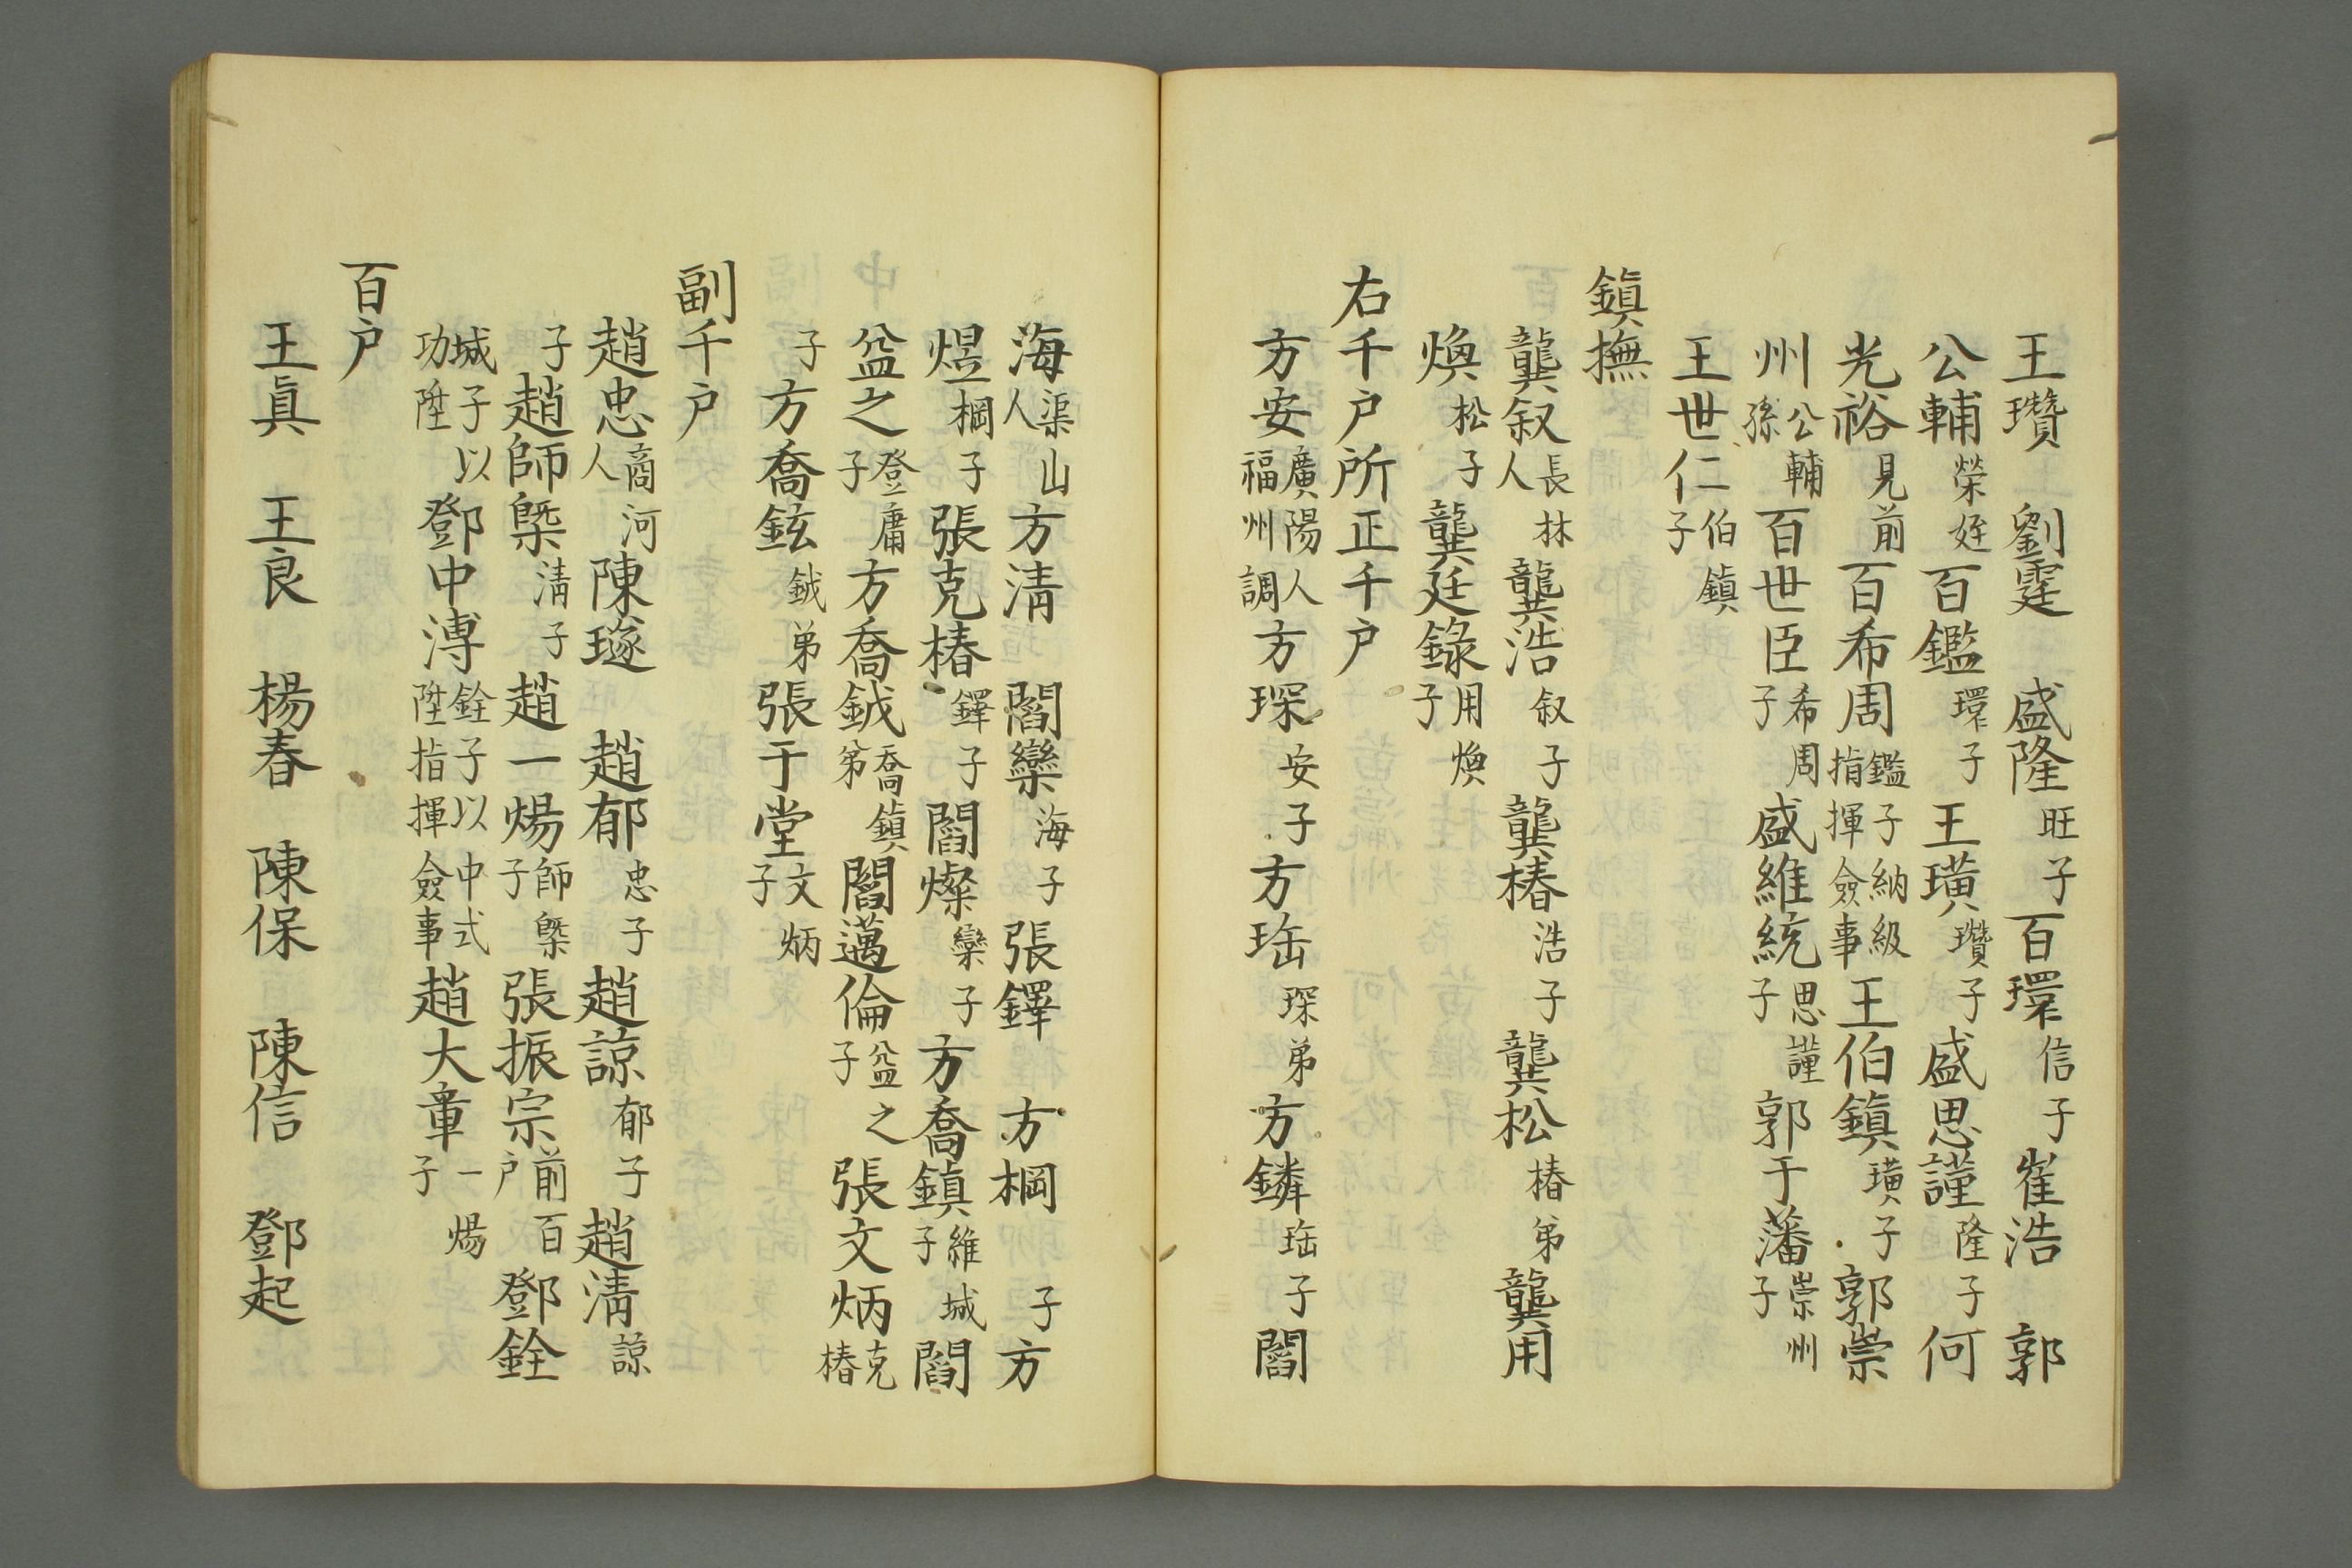 王瓚　劉霆　盛隆旺子百環信子崔浩　郭
公輔榮姪百鑑環子王璜瓚子盛思謹隆子何
光裕見前百希周鑑子納級指揮僉事王伯鎮璜子郭崇
州公輔孫百世臣希周子盛維統思謹子郭于藩崇州子
王世仁伯鎮子
鎮撫
龔叙長林人龔浩叙子龔椿浩子龔松椿弟龔用
煥松子龔廷錄用煥子
右千户所正千户
方安廣陽人福州調方琛安子方𤥭琛弟方鏻𤥭子閻
海渠山人方淸　閻欒海子張鐸　方棡　子方
煜棡子張克椿鐸子閻燦欒子方喬鎮維城子閻
盆之登庸子方喬鉞喬鎮弟閻邁倫盆之子張文炳克椿
子方喬鉉鉞弟張于堂文炳子
副千户
趙忠商河人陳璲　趙郁忠子趙諒郁子趙淸諒
子趙師槩淸子趙一煬師槩子張振宗前百户鄧銓
城子以功陞鄧中溥銓子以中式陞指揮僉事趙大章一煬子
百户
王眞　王良　楊春　陳保　陳信　鄧起